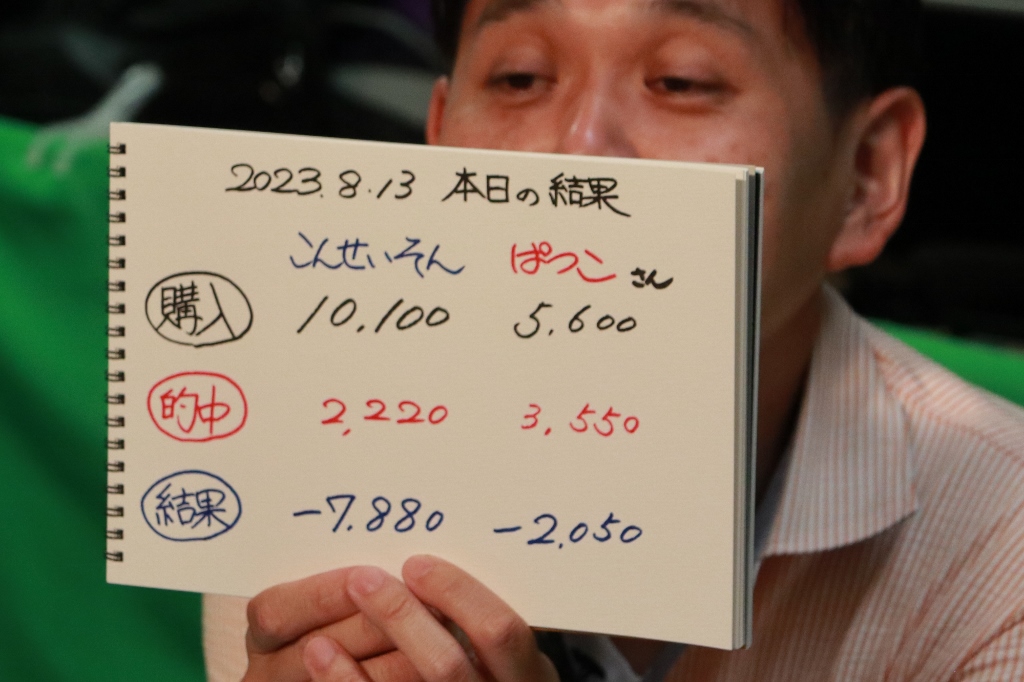 2023.8.13 本日の結果
こんせいそん ぱつこさん
購入 10,100 5,600
的中 2,220 3,550
結果 -7,880 -2,050